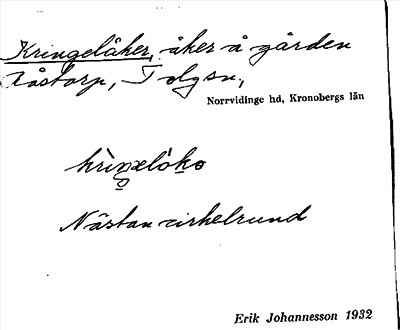 Kringelåker, åker å gården
Råstorp, Tolgsn,
Norrvidinge hd, Kronobergs län
Nästan cirkelrund
Erik Johannesson 1932